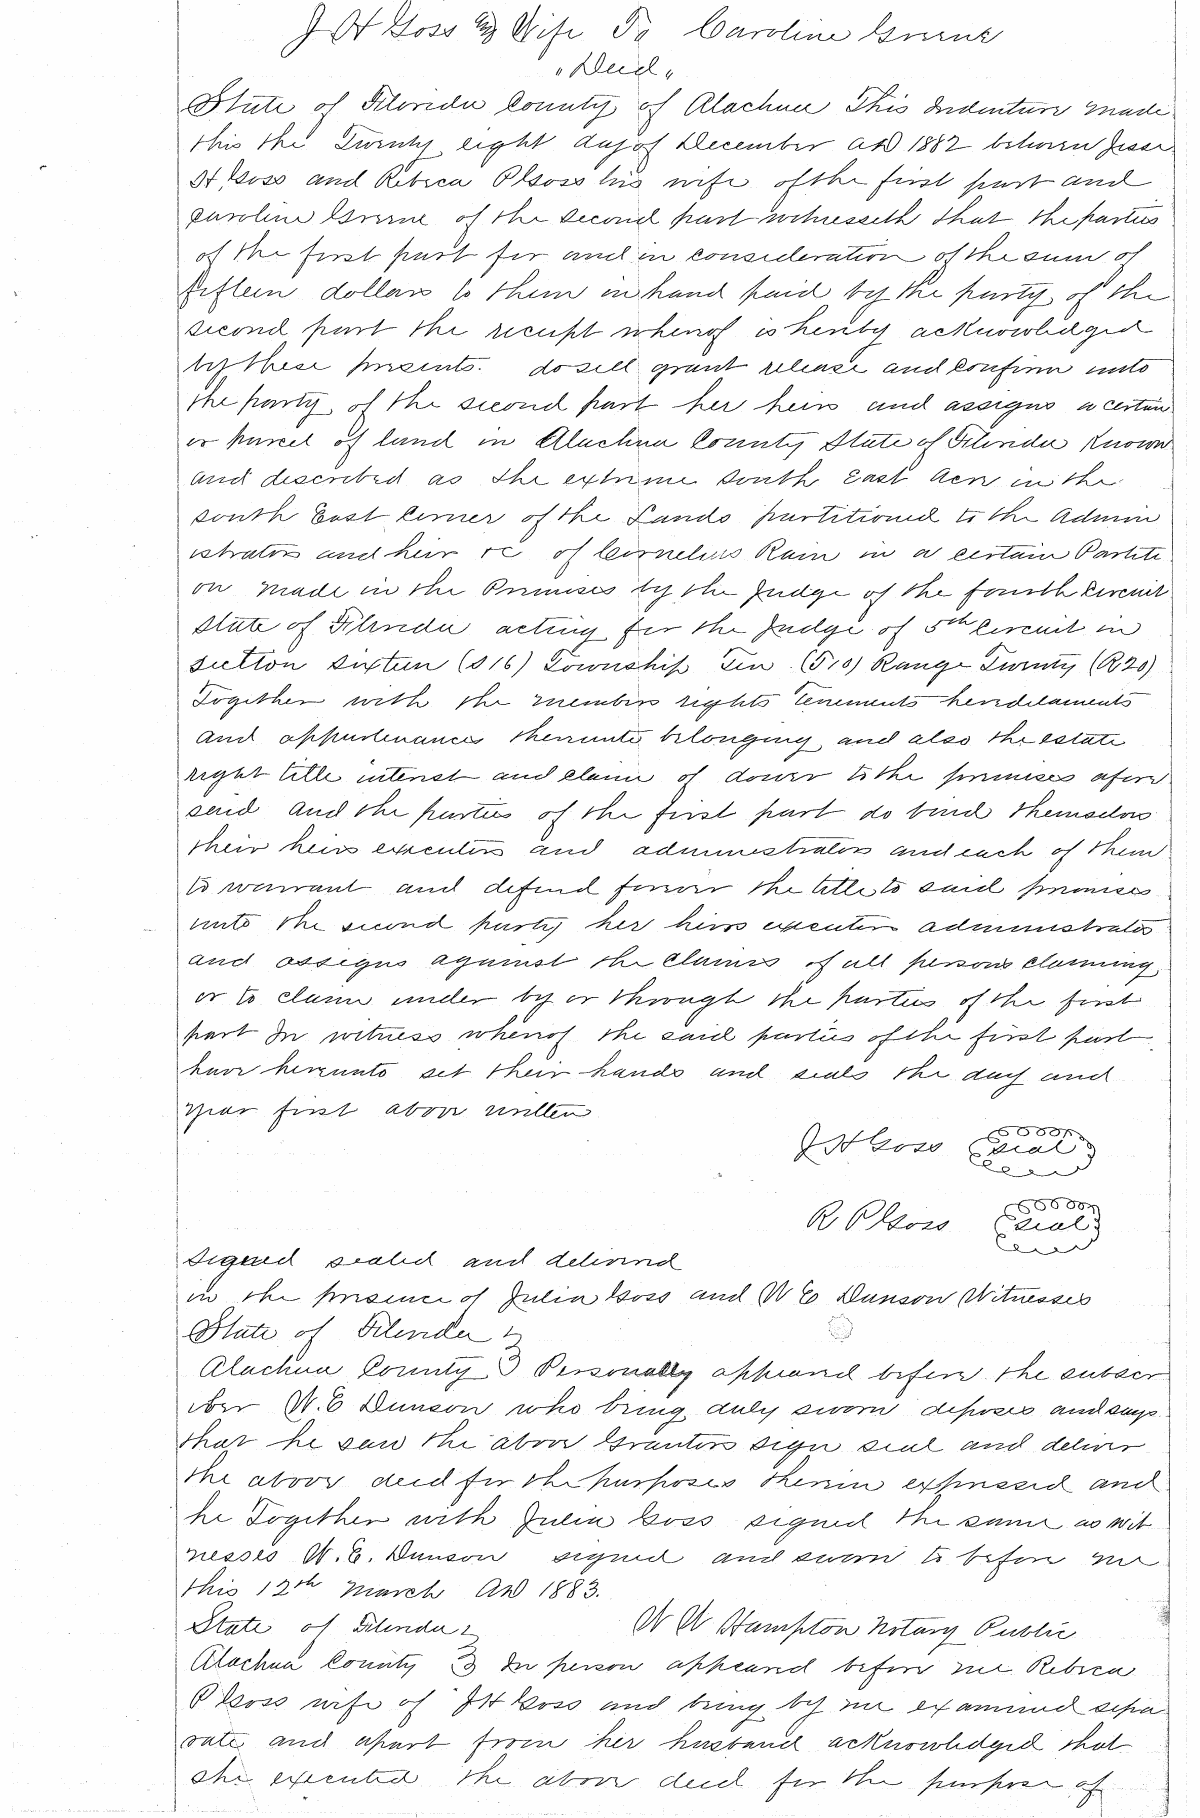 J H Goss & Wife To Caroline Greene
"Deed"
State of Florida County of Alachua This Indenture made
this the Twenty eight day of December AD 1882 between Jesse
H Goss and Rebeca P Goss his wife of the first part and
Caroline Greene of the second part witnesseth that the parties
of the first part for and in consideration of the sum of
fifteen dollars to them in hand paid by the party of the
second part the receipt whereof is hereby acknowledged
by these presents. do sell grant release and confirm unto
the party of the second part her heirs and assigns a certain
or parcel of land in Alachua County State of Florida Known
and described as the extreme South East Acre in the
South East Corner of the Lands partitioned to the Admin
istrators and heir &c of Cornelius Rain in a certain Partiti
on made in the Premises by the Judge of the fourth Circuit
State of Florida acting for the Judge of 5th Circuit in
section sixteen (S16) Township Ten (T10) Range Twenty (R20)
Together with the members rights tenements heredilaments
and appurtenances thereunto belonging and also the estate
right title interest and claim of dower to the premises afore
said and the parties of the first part do bind themselvs
their heirs executors and administrators and each of them
to warrant and defend forever the title to said premises
unto the second party her heirs executors administrators
and assigns against the claims of all persons claiming
or to claim under by or through the parties of the first
part In witness whereof the said parties of the first part
have hereunto set their hands and seals the day and
year first above written
J H Goss Seal
R P Goss Seal
Signed sealed and delivered
in the presence of Julia Goss and W E Dunson Witnesses
State of Florida
Alachua County } Personally appeared before the subscr
iber W. E Dunson who being duly sworn deposes and says
that he saw the above Grantors sign seal and deliver
the above deed for the purposes therein expressed and
he Together with Julia Goss signed the same as wit
nesses W. E. Dunson signed and sworn to before me
this 12th March AD 1883.
State of Florida W W Hampton Notary Public
Alachua County } In person appeared before me Rebeca
P Goss wife of J H Goss and being by me examined sepa
rate and apart from her husband acknowledged that
she executed the above deed for the purpose of